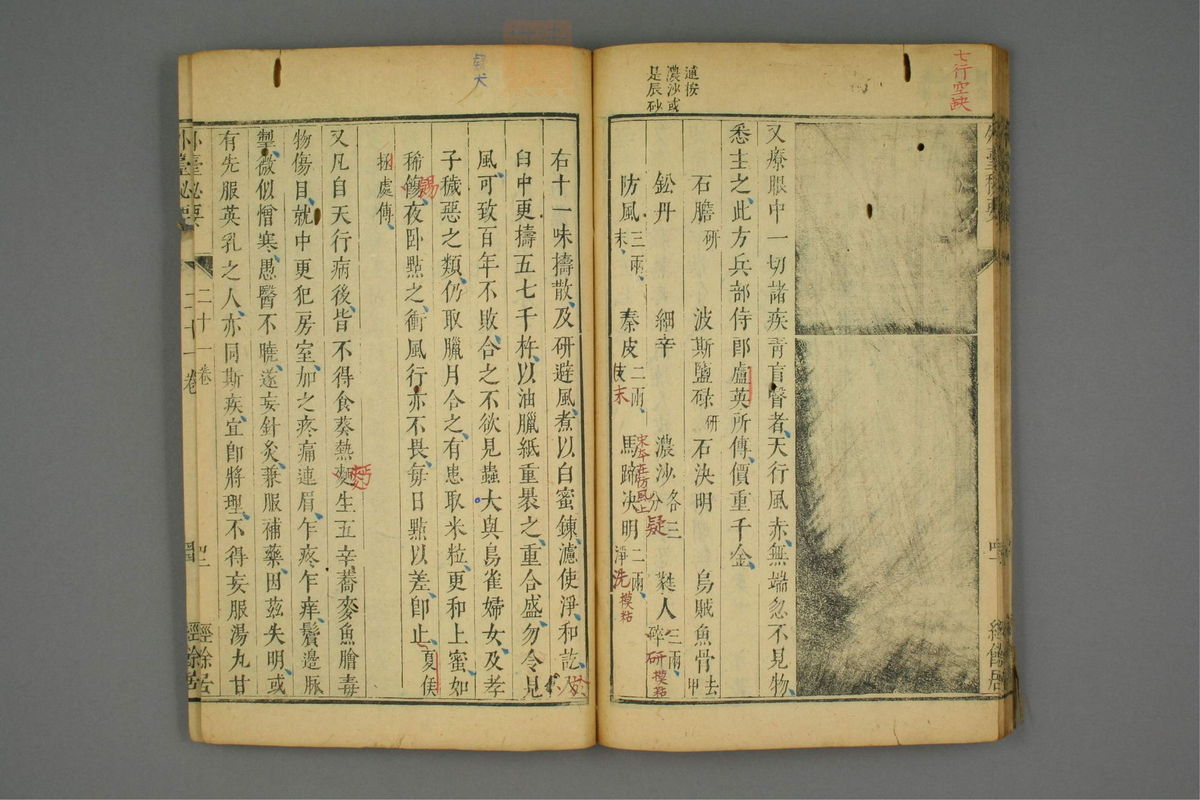 七行空缺
外臺秘要
又療眼中一切諸疾青盲瞖者天行風赤無端忽不見物
悉主之此方兵部侍郎盧英所傳價重千金
石膽研 波斯鹽碌研 石決明 烏賊魚骨去甲
鈆丹 細辛 濃沙各三分 疑 蕤人三兩碎 研 模粘
防風三兩末 秦皮二兩 皮末 馬蹄決明二兩淨 洗 模粘
璉按
濃沙或
是辰砂
右十一味擣散及研避風煮以白蜜鍊濾使淨和訖及於
臼中更擣五七千杵以油臘紙重裹之重合盛勿令見
風可致百年不敗合之不欲見蟲犬與鳥雀婦女及孝
子穢惡之類仍取臘月合之有患取米粒更和上蜜如
稀餳夜卧點之衝風行亦不畏每日點以差即止夏侯
拯處傳
又凡自天行病後皆不得食葵熱麵生五辛蕎麥魚膾毒
物傷目就中更犯房室加之疼痛連眉乍疼乍痒鬢邊脈
掣微似憎寒愚醫不曉遂妄針灸兼服補藥因茲失明或
有先服英乳之人亦同斯疾宜即將理不得妄服湯丸甘
外臺秘要
二十一卷
經餘居